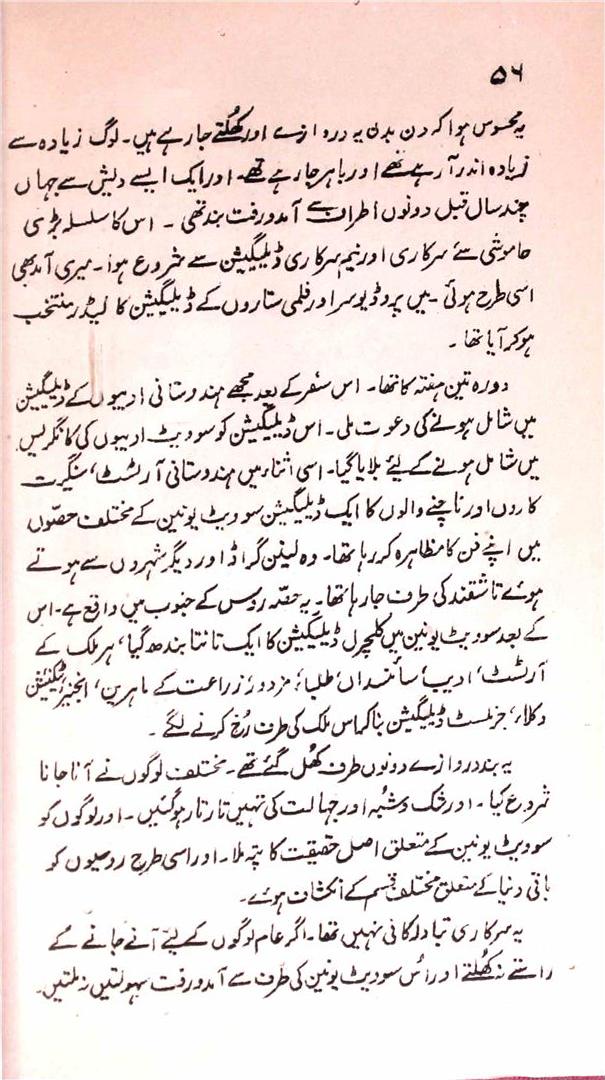 ۵۶
یہ محسوس ہوا کہ دن بدن یہ دروازے اور کھُلتے جا رہے ہیں۔ لوگ زیادہ سے
زیادہ اندر آ رہے تھے اور باہر جا رہے تھے۔ اور ایک ایسے دیش سے جہاں
چند سال قبل دونوں اطراف سے آمد و رفت بند تھی۔ اس کا سلسلہ بڑی
خاموشی سے سرکاری اور نیم سرکاری ڈیلیگیشن سے شروع ہوا۔ میری آمد بھی
اسی طرح ہوئی۔ میں پروڈیوسر اور فلمی ستاروں کے ڈیلیگیشن کا لیڈر منتخب
ہو کر آیا تھا۔
دورہ تین ہفتہ کا تھا۔ اس سفر کے بعد مجھے ہندوستانی ادیبوں کے ڈیلیگیشن
میں شامل ہونے کی دعوت ملی۔ اس ڈیلیگیشن کو سوویٹ ادیبوں کی کانگریس
میں شامل ہونے کے لیئے بلایا گیا۔ اسی اثناء میں ہندوستانی آرٹسٹ، سنگیت
کاروں اور ناچنے والوں کا ایک ڈیلیگیشن سوویٹ یونین کے مختلف حصّوں
میں اپنے فن کا مظاہرہ کر رہا تھا۔ وہ لینن گراڈ اور دیگر شہروں سے ہوتے
ہوئے تاشقند کی طرف جا رہا تھا۔ یہ حصّہ روس کے جنوب میں واقع ہے۔ اس
کے بعد سوویٹ یونین میں کلچرل ڈیلیگیشن کا ایک تانتا بندھ گیا، ہر ملک کے
آرٹسٹ، ادیب، سائنسداں، طلباء، مزدور، زراعت کے ماہرین، انجنیئر، ٹیکنیشن
وکلاء، جرنلسٹ ڈیلیگیشن بنا کر اس ملک کی طرف رُخ کرنے لگے۔
یہ بند دروازے دونوں طرف کھُل گئے تھے۔ مختلف لوگوں نے آنا جانا
شروع کیا۔ اور شک و شبُہ اور جہالت کی تہیں تار تار ہو گئیں۔ اور لوگوں کو
سوویٹ یونین کے متعلق اصل حقیقت کا پتہ ملا۔ اور اسی طرح روسیوں کو
باقی دنیا کے متعلق مختلف قسم کے انکشات ہوئے۔
یہ سرکاری تبادلہ کافی نہیں تھا۔ اگر عام لوگوں کے لیئے آنے جانے کے
راستے نہ کھُلتے اور اُس سوویٹ یونین کی طرف سے آمد و رفت سہولتیں نہ ملتیں۔